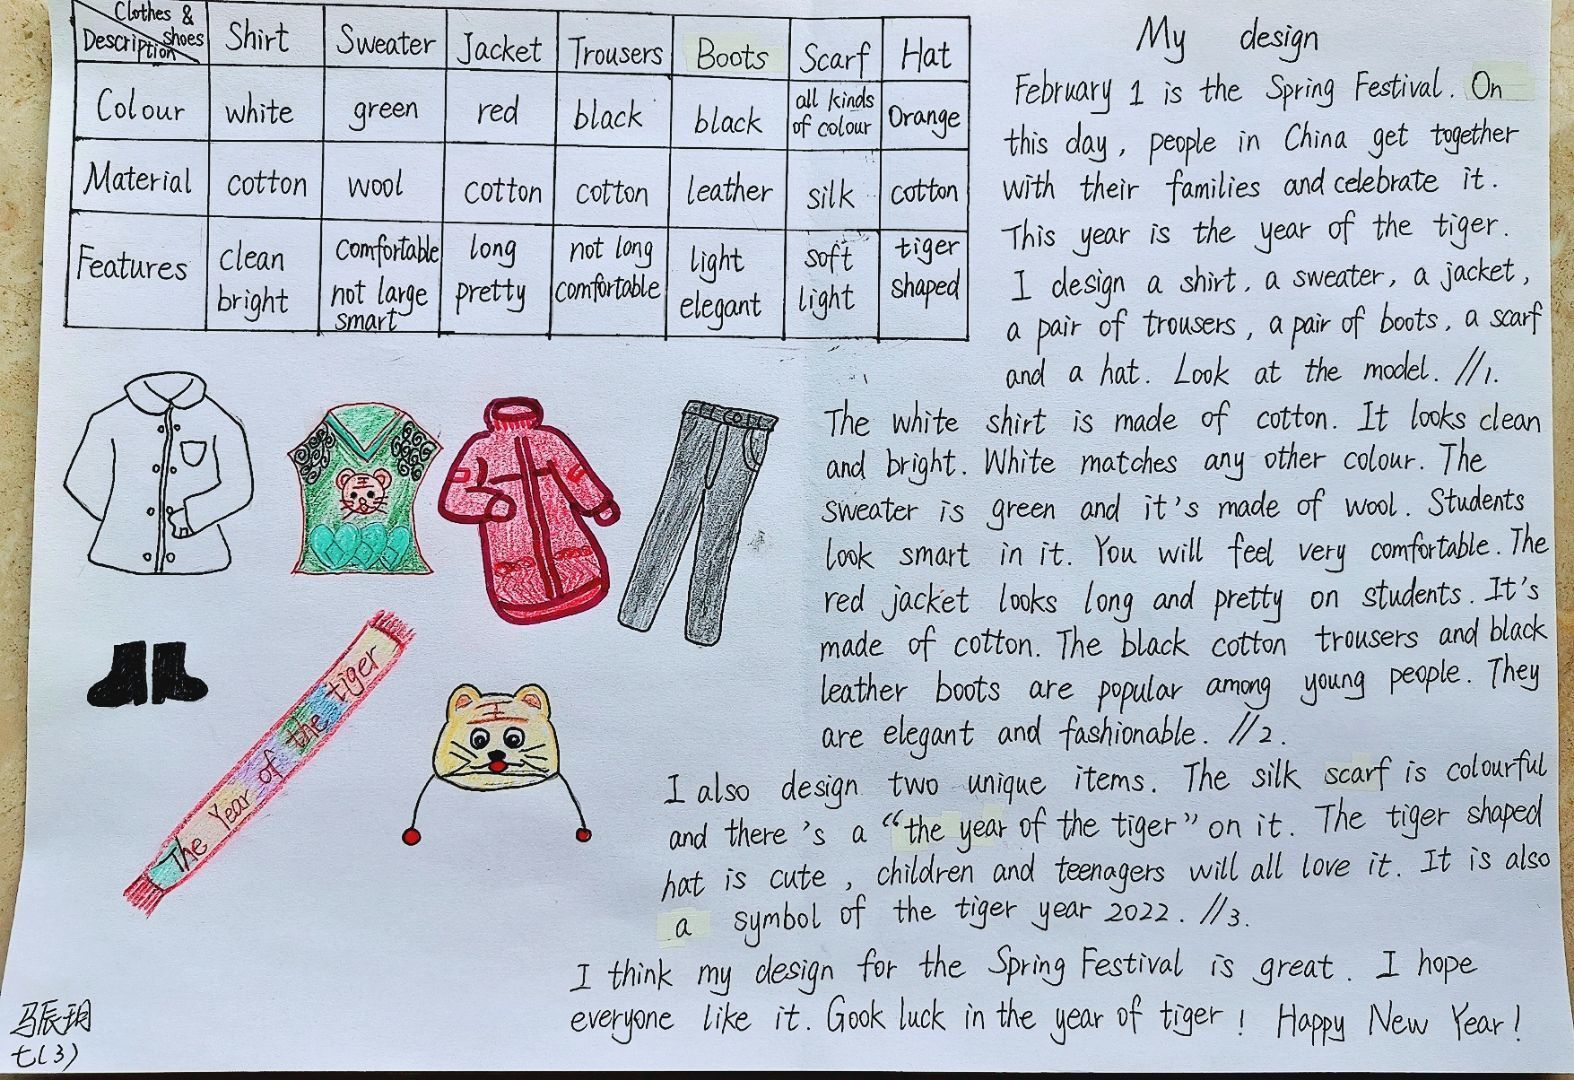 Clothes & shoes Description Shirt Sweater Jacket Trousers Boots Scarf Hat
Colour white green red black black all kinds of colour Orange
Material cotton wool cotton cotton leather silk cotton
Features clean bright comfortable not large smart long pretty not long comfortable light elegant soft light tiger shaped
My design
February 1 is the Spring Festival. On
this day, people in China get together
with their families and celebrate it.
This year is the year of the tiger.
I design a shirt, a sweater, a jacket,
a pair of trousers, a pair of boots, a scarf
and a hat. Look at the model. //1.
The white shirt is made of cotton. It looks clean
and bright. White matches any other colour. The
sweater is green and it's made of wool. Students
look smart in it. You will feel very comfortable. The
red jacket looks long and pretty on students. It's
made of cotton. The black cotton trousers and black
leather boots are popular among young people. They
are elegant and fashionable. //2.
I also design two unique items. The silk scarf is colourful
and there's a "the year of the tiger" on it. The tiger shaped
hat is cute, children and teenagers will all love it. It is also
a symbol of the tiger year 2022. //3.
I think my design for the Spring Festival is great. I hope
everyone like it. Gook luck in the year of tiger! Happy New Year!
王
The Year of the tiger
王
马辰玥
七(3)